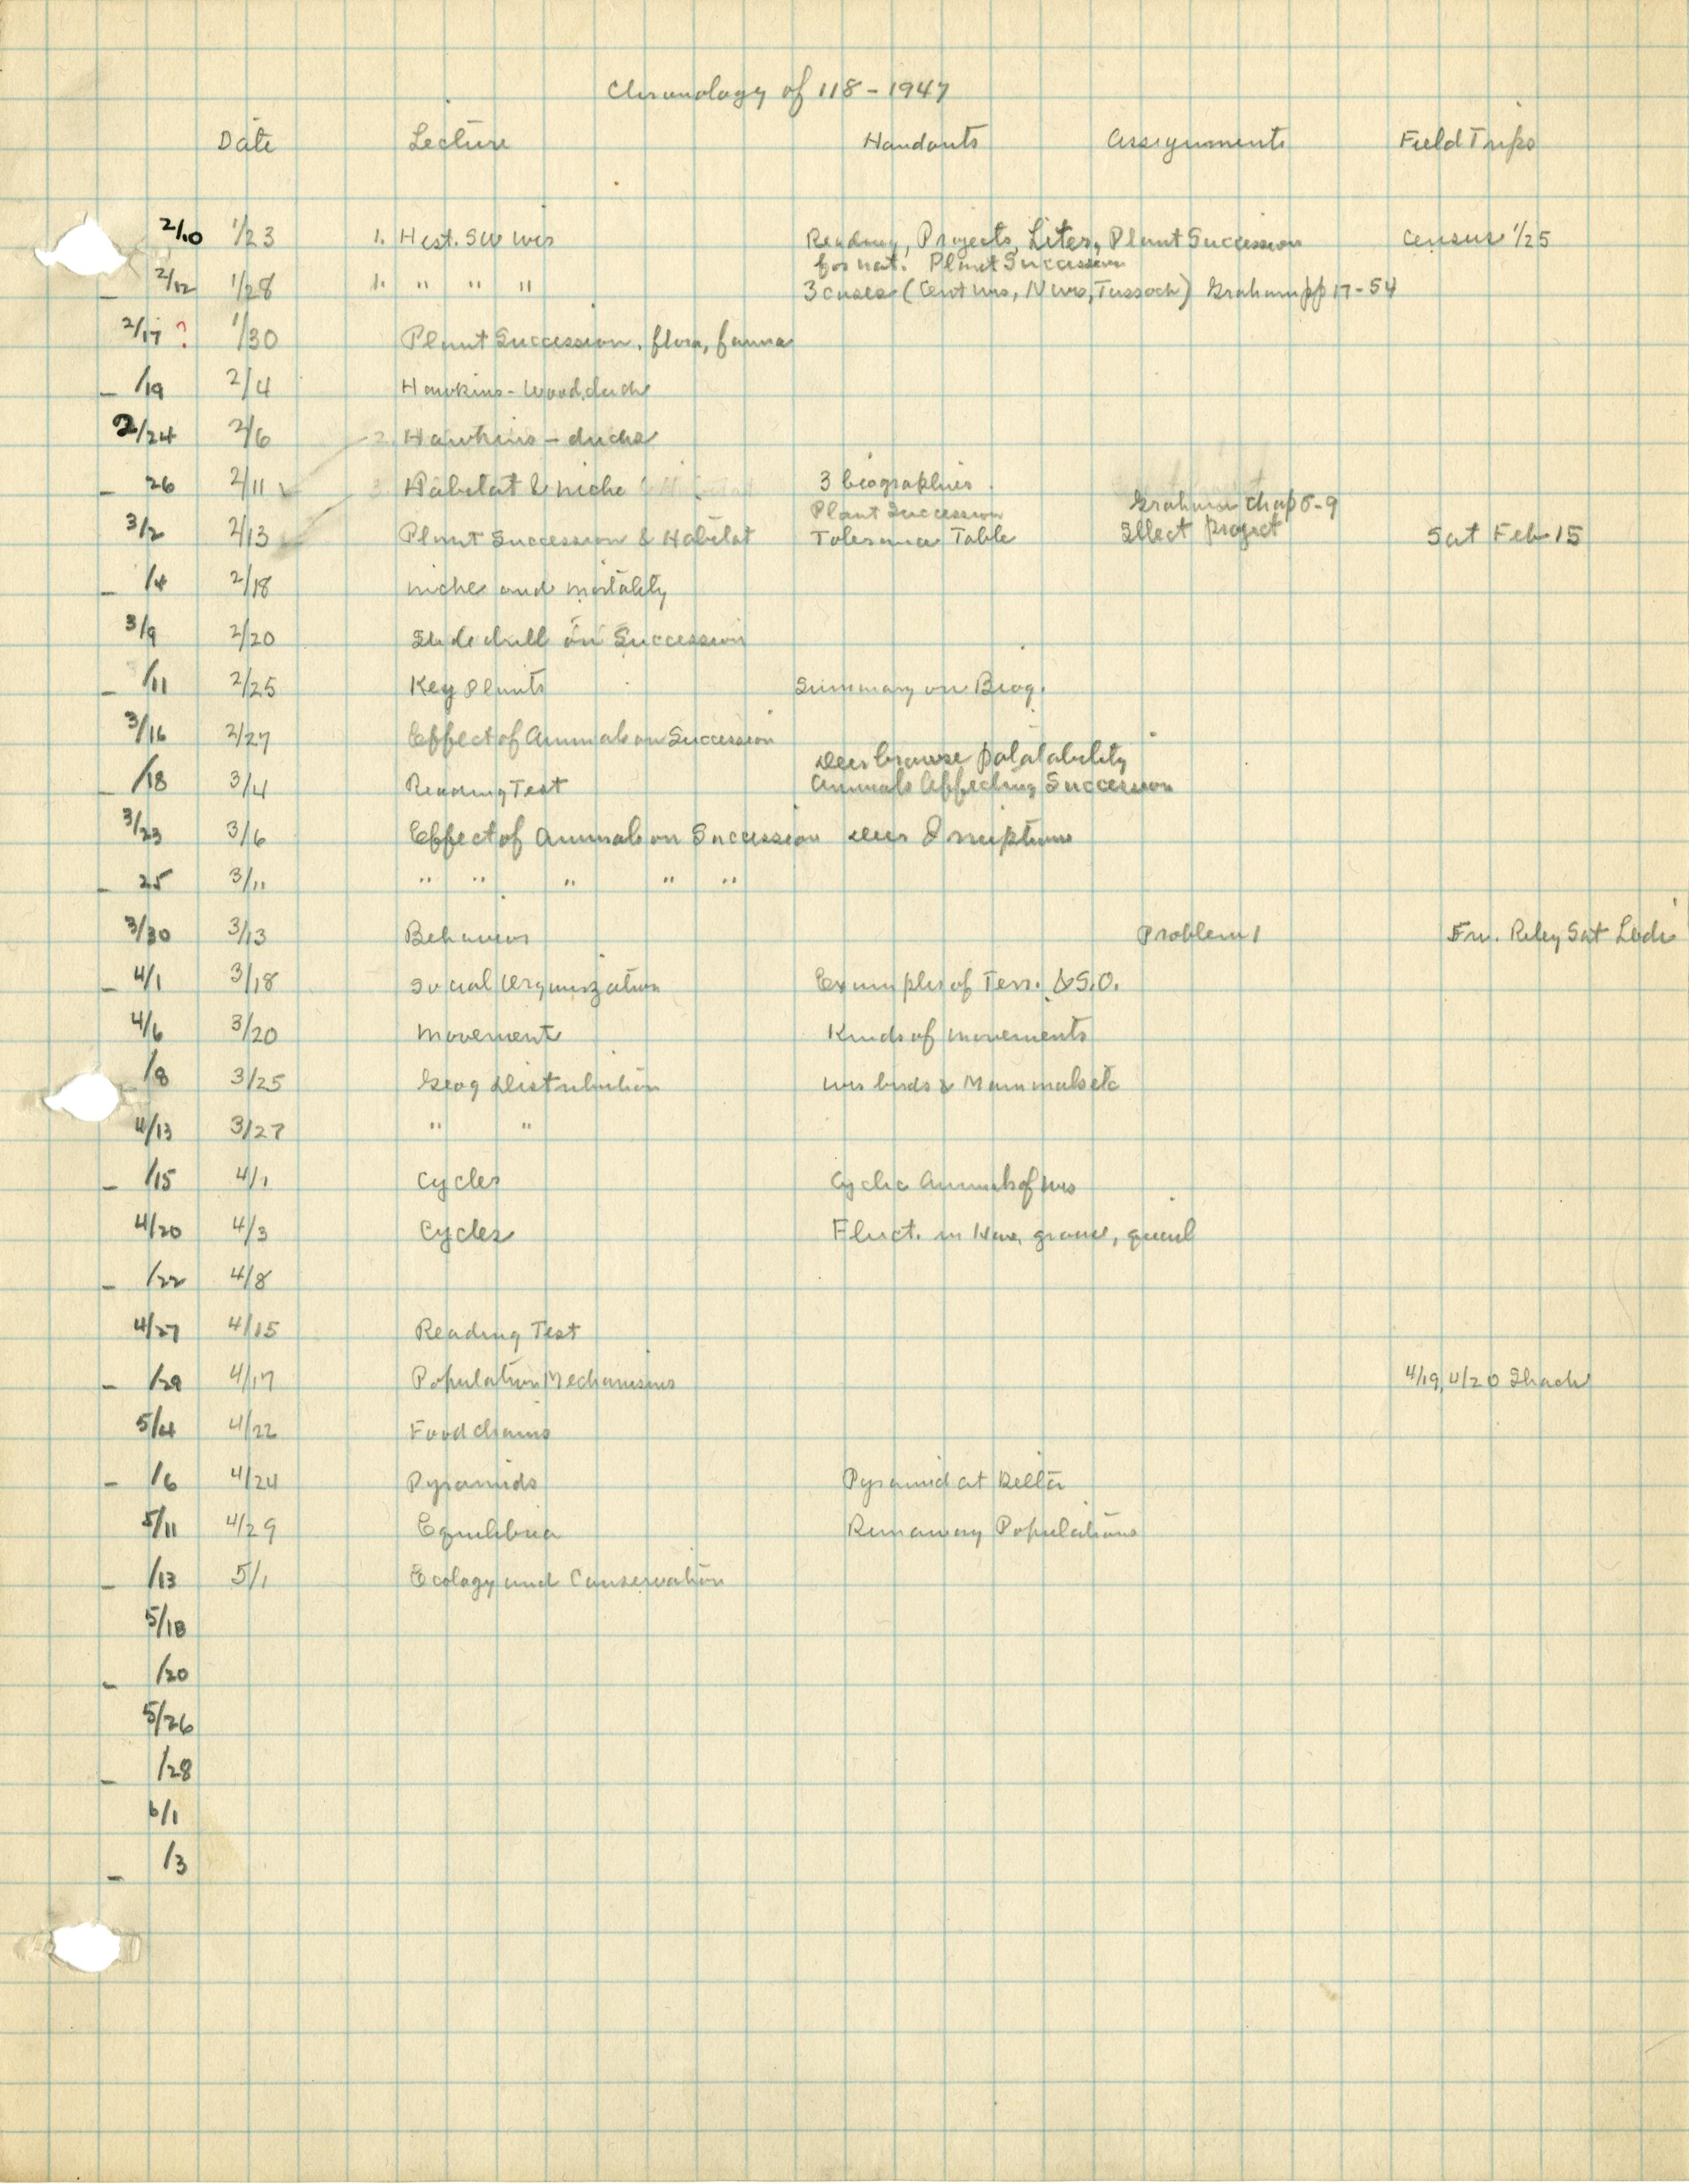 Chronology of 118 - 1947
Date Lecture Handouts Assignments Field Trips
2/10 1/23 1. Hist. SW Wis Reading, Projects, Liter, Plant Succession Census 1/25
for nat. Plant Succession
2/12 1/28 1. " " " 3 cases (Cent Wis, N Wis, Tussock) Graham pp 17-54
2/17 ? 1/30 Plant Succession, flora, fauna
/19 2/4 Hawkins - Wood duck
2/24 2/6 2. Hawkins - ducks
26 2/11 3. Habitat & niche 3 biographies
Plant Succession Graham Chap 5-9
3/2 2/13 Plant Succession & Habitat Tolerance Table Select Project Sat Feb 15
/4 2/18 niche and mortality
3/9 2/20 Slide drill on Succession
/11 2/25 Key Plants Summary on Biog.
3/16 2/27 Effect of Animals on Succession
Deer browse palatability
/18 3/4 Reading Test Animals Affecting Succession
3/23 3/6 Effect of Animals on Succession Deer Irruptions
25 3/11 " " " " "
3/30 3/13 Behavior Problem 1 Riley Sat Lodi
4/1 3/18 Social Organization Examples of Terr. & S.O.
4/6 3/20 Movement Kinds of movements
/8 3/25 Geog Distribution Wis birds & Mammals etc
4/13 3/27 " "
/15 4/1 Cycles Cyclic Animals of Wis
4/20 4/3 Cycles Fluct. in Hare, grouse, quail
/22 4/8
4/27 4/15 Reading Test
/29 4/17 Population Mechanisms 4/19, 4/20 Shack
5/4 4/22 Food chains
/6 4/24 Pyramids Pyramid at Delta
5/11 4/29 Equilibria Runaway Populations
/13 5/1 Ecology and Conservation
5/18
/20
5/26
/28
6/1
/3